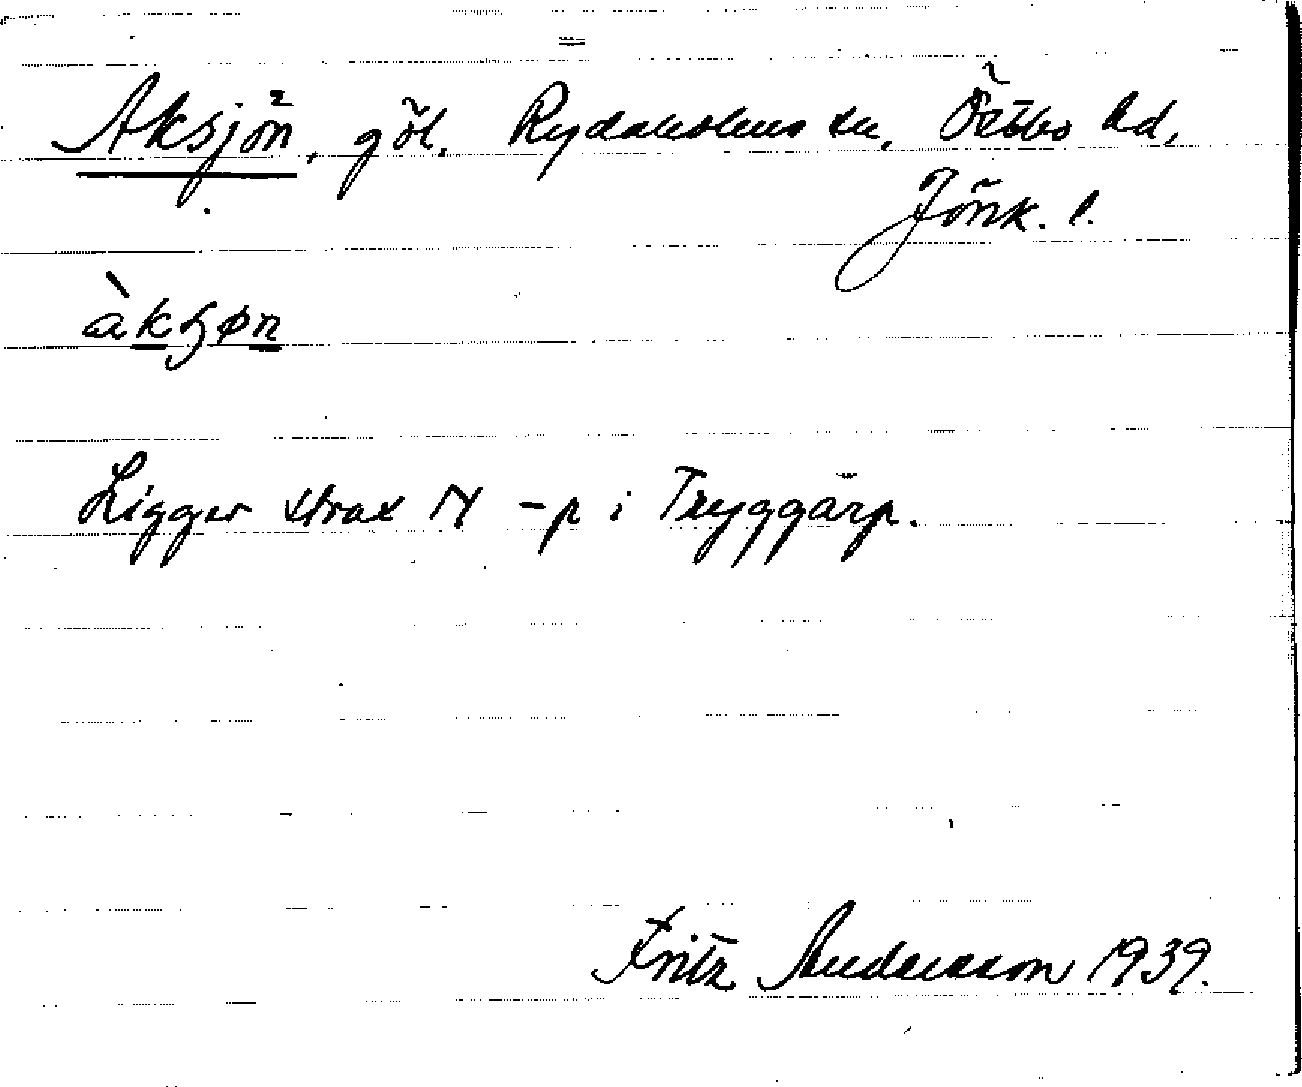 Aksjön, göl. Rydaholms sn, Östbo hd,
Jönk. l.
àkʃøn
Ligger strax N -p i Tryggarp.
Fritz Andersson 1939.